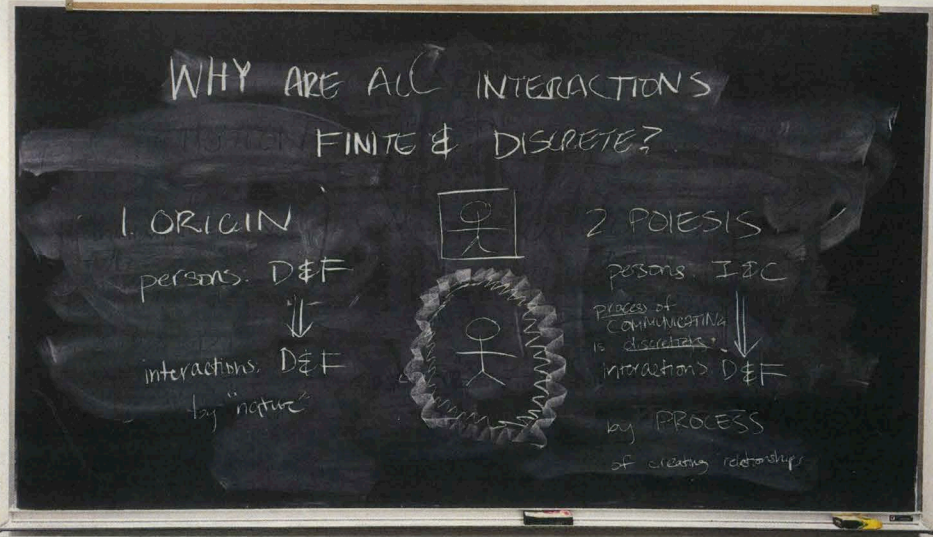 WHY ARE ALL INTERACTIONS
FINITE & DISCRETE?
1. ORIGIN
persons: D&F
interactions: D&F
by "nature"
2 POIESIS
persons: I&C
process of
COMMUNICATING
is
interactions D&F
by PROCESS
of creating relationships